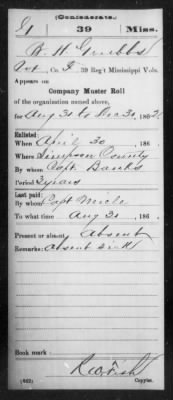 (Confederate.)
G 39 Miss.
B. H. Grubbs
Pvt, Co. G, 39 Reg't Mississippi Vols.
Appears on
Company Muster Roll
of the organization named above,
for Aug 31 to Dec 31, 1862.
Enlisted:
When April 30, 186 .
Where Simpson County
By whom Capt. Banks
Period 3 years
Last paid:
By whom Capt
To what time Aug 31, 186 .
Present or absent Absent
Remarks: absent sick
Book mark:
(642)
Copyist.